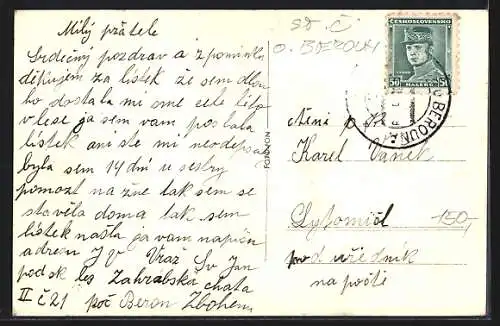 Milý přátele
Srdečný pozdrav a zpomínku
děkujem za lístek že sem dlou
ho dostala mi sme cele léto
v lese ja sem vam poslala
lístek ani ste mi neodepsali
byla sem 14 dnů u sestry
pomozt na žne tak sem se
stavěla doma tak sem
lístek našla ja vam napíšu
adresu Vraž Sv Jan
pod sk les Zahrabská chata
II č 21 poč Beron Zbohem
FOTOFON
st. č.
o. BEROUN
ČESKOSLOVENSKO
50 HALÉŘŮ 50
BEROUN
Ctěni p
Karel Vanek
Lytomičl
150,-
pod uředník
na pošti